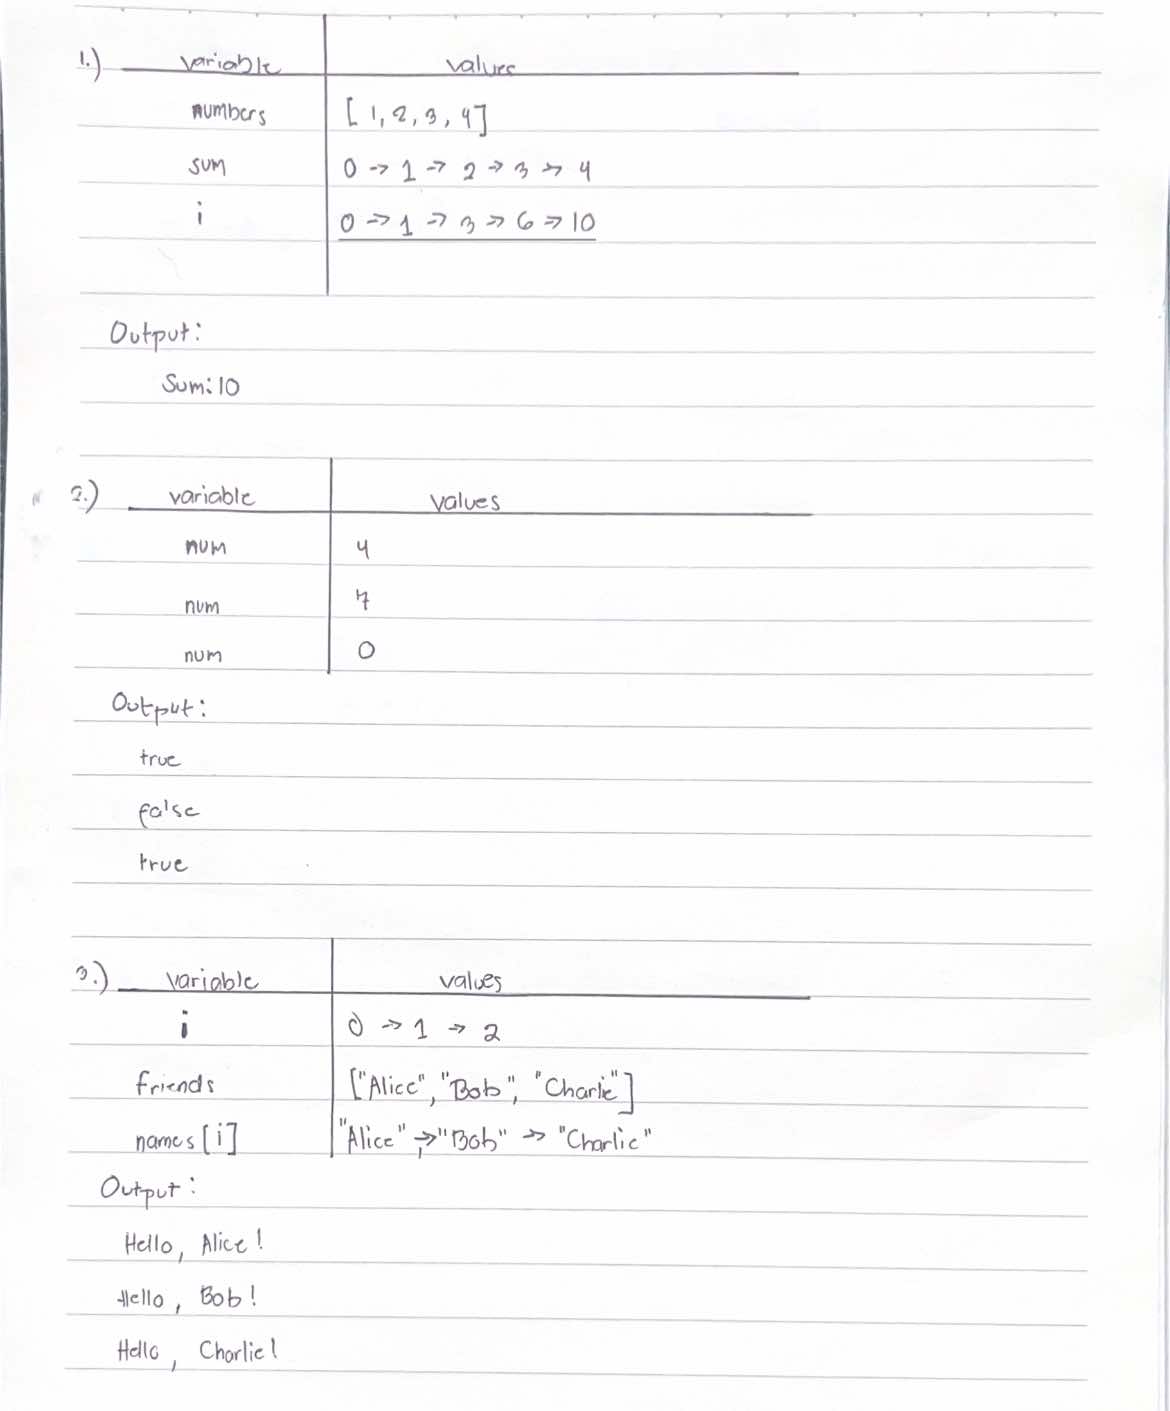 1.) variable values
numbers [1, 2, 3, 4]
sum 0 → 1 → 2 → 3 → 4
i 0 → 1 → 3 → 6 → 10
Output:
Sum: 10
2.) variable values
num 4
num 7
num 0
Output:
true
false
true
3.) variable values
i 0 → 1 → 2
friends ["Alice", "Bob", "Charlie"]
names[i] "Alice", → "Bob" → "Charlie"
Output:
Hello, Alice!
Hello, Bob!
Hello, Charlie!